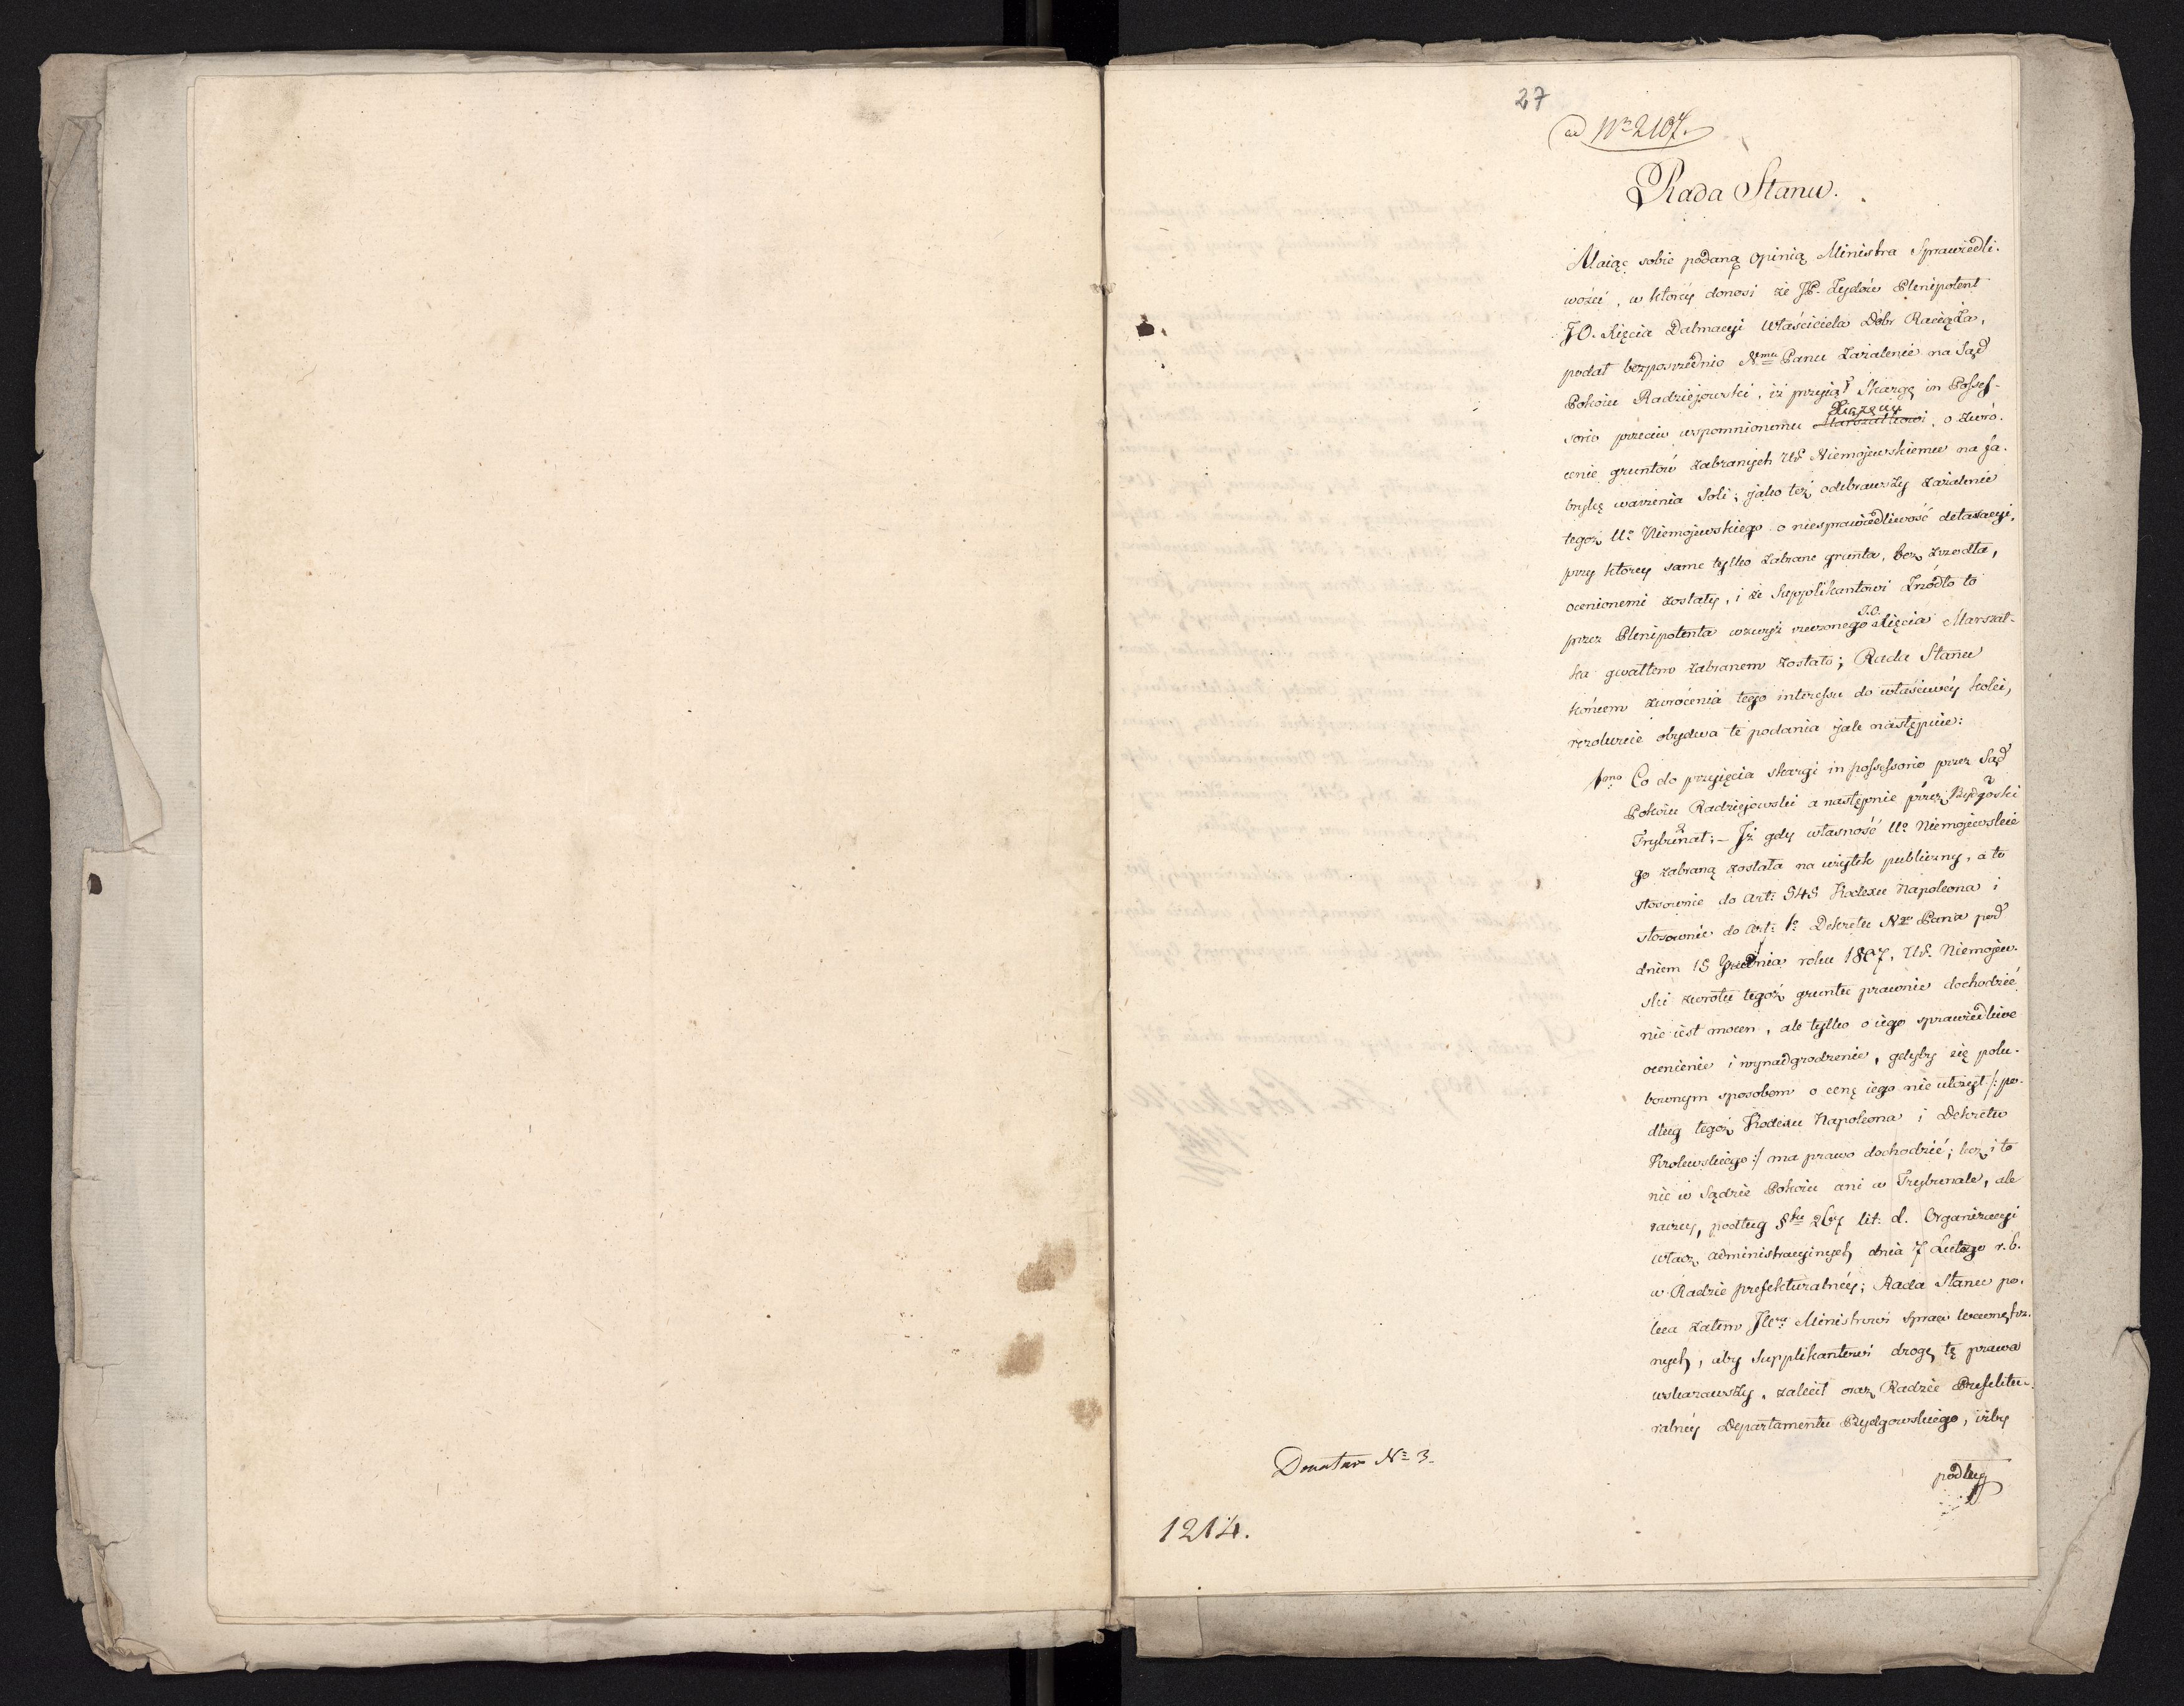 27
ad Nro 2107.
Rada Stanu.
Maiąc sobie podaną opinią Ministra Sprawiedli-
wości, w którey donosi że JP. Zydów Plenipotent
JO. Xięcia Dalmacyi Właściciela Dóbr Raciąża,
podał bezpośrzednio Nmu Panu zażalenie na Sąd
Pokoiu Radziejowski, iż przyiął Skargę in Possef-
sorio przeciw wspomnionemu Xiążęciu Marszałkowi, o zwró-
cenie gruntów zabranych Ur. Niemojewskiemu na fa-
brykę warzenia Soli; jako też odebrawszy zażalenie
tegoż Uo Niemojewskiego o niesprawiedliwość detaxacyi,
przy ktorey same tylko zabrane grunta, bez zrzodła,
ocenionemi zostały, i że Supplikantowi Zrzódło to
przez Plenipotenta wzwyż rzeczonego J.O. Xięcia Marszał-
ka gwałtem zabranem zostało; Rada Stanu
końcem zwrócenia tego interessu do właściwéy kolei,
rezolwuie obydwa te podania jak następuie:
1mo Co do przyięcia skargi in possessorio przez Sąd
Pokoiu Radziejowski a następnie przez Bydgoski
Trybunał; – Iż gdy własność Uo Niemojewskie
go zabraną została na użytek publiczny, a to
stosownie do Art: 545 Kodexu Napoleona i
stosownie do Art: 1o Dekretu Ngo Pana pod
dniem 15 Grudnia roku 1807, Ur. Niemojew-
ski zwrotu tegoż gruntu prawnie dochodzić
nie iest mocen, ale tylko o iego sprawiedliwe
ocenienie i wynadgrodzenie, gdyby się polu-
bownym sposobem o cenę iego nie ułożył /: po-
dług tegoż Kodexu Napoleona i Dekretu
Krolewskiego :/ ma prawo dochodzić; lecz i to
nie w Sądzie Pokoiu ani w Trybunale, ale
raczey, podług §fu 26y lit: d. Organizacyi
władz administracyinych dnia 7 Lutego r. b.
w Radzie prefekturalnéy; Rada Stanu po-
leca zatem JWmu Ministrowi Spraw Wewnętrz-
nych, aby Supplikantowi drogę tę prawa
wskazawszy, zalecił oraz Radzie Prefektu-
ralnéy Departamentu Bydgowskiego, iżby
podług
Donatar No 3.
1214.